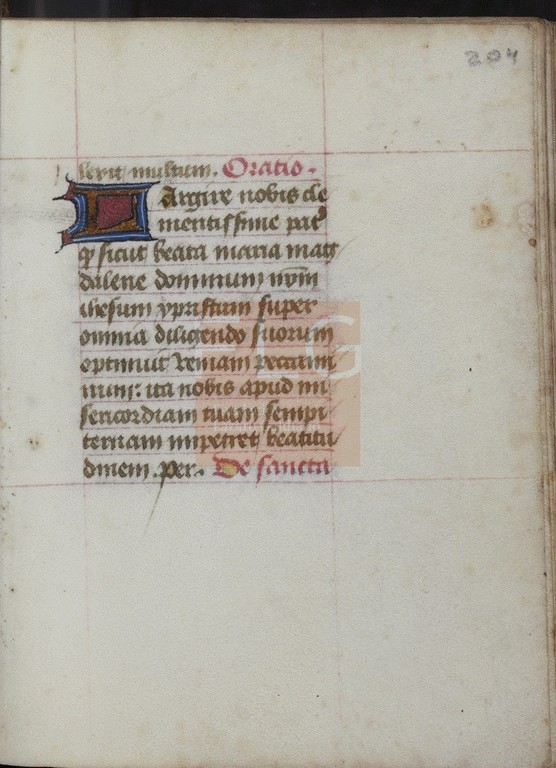 204
lexit multum. Oratio.
Largire nobis cle
mentissime pat᷒
ꝙ sicut beata maria mag
dalene dominum nr̄m
ihesum xpristum super
omnia diligendo suorum
optinuit veniam peccami
num: ita nobis apud mi
sericordiam tuam sempi
ternam impetret beatitu
dinem. per. De sancta